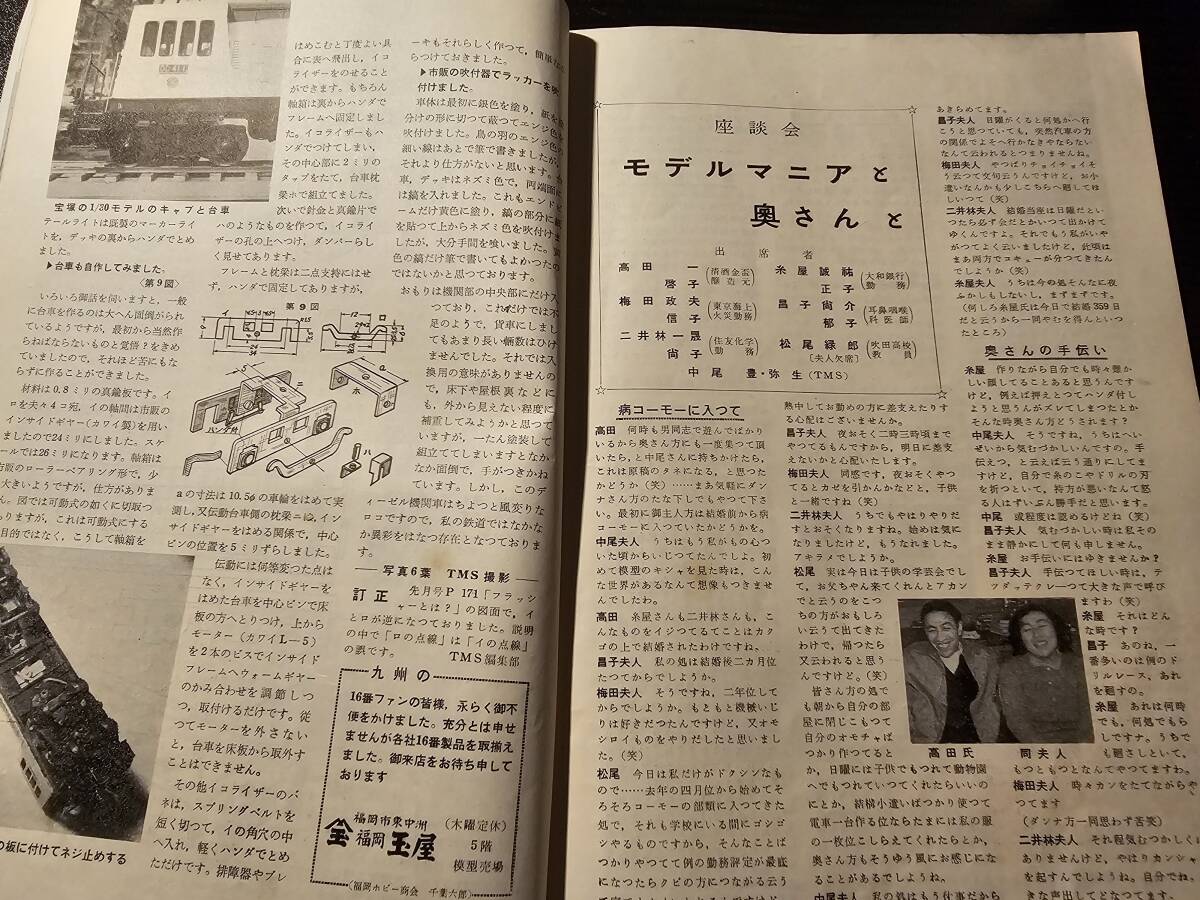 宝塚の1/30モデルのキャブと台車
テールライトは既製のマーカーライ
トを，デッキの裏からハンダでとめ
ました。
▶台車も自作してみました。
〈第9図〉
いろいろ御話を伺いますと，一般
に台車を作るのは大へん面倒がられ
ているようですが，最初から当然作
らねばならないものと覚悟？をきめ
ていましたので，それほど苦にもな
らずに作ることができました。
材料は0.8ミリの真鍮板です。イ
ロを夫々4コ宛，イの軸間は市販の
インサイドギヤー(カワイ製)を用い
ましたので24ミリにしました。スケ
ールでは26ミリになります。軸箱は
市販のローラーベアリング形で，少
大きいようですが，仕方がありま
ん。図では可動式の如くに切取つ
ありますが，これは可動式にする
目的ではなく，こうして軸箱を
はめこむと丁度よい具
合に表へ飛出し，イコ
ライザーをのせること
ができます。もちろん
軸箱は裏からハンダで
フレームへ固定しまし
た。イコライザーもハ
ンダでつけてしまい，
その中心部に2ミリの
タップをたて，台車枕
梁ホで組立てました。
次いで針金と真鍮片で
ハのようなものを作つて，イコライ
ザーの孔の上へつけ，ダンパーらし
く見せてあります。
フレームと枕梁は二点支持にはせ
ず，ハンダで固定してありますが，
第9図
ハンダ付
aの寸法は10.5φの車輪をはめて実
測し，又伝動台車側の枕梁ニは，イン
サイドギヤーをはめる関係で，中心
ピンの位置を5ミリずらしました。
伝動には何等変つた点は
なく，インサイドギヤーを
はめた台車を中心ピンで床
板の方へとりつけ，上から
モーター(カワイL－5)
を2本のビスでインサイド
フレームへウォームギヤー
のかみ合わせを調節しつ
つ，取付けるだけです。従
つてモーターを外さない
と，台車を床板から取外す
ことはできません。
その他イコライザーのバ
ネは，スプリングベルトを
短く切つて，イの角穴の中
へ入れ，軽くハンダでとめ
ただけです。排障器やブレ
の板に付けてネジ止めする
ーキもそれらしく作つて，簡単な
らつけておきました。
▶市販の吹付器でラッカーを吹
付けました。
車体は最初に銀色を塗り，紙を
分けの形に切つて蔽つてエンジ色を
吹付けました。鳥の羽のエンジ色の
細い線はあとで筆で書きましたが，
それより仕方がないと思います。
車，デッキはネズミ色で，両端面に
は縞を入れました。これもエンドビ
ームだけ黄色に塗り，縞の部分に紙
を貼つて上からネズミ色を吹付けま
したが，大分手間を喰いました。黄
色の縞だけ筆で書いてもよかつたの
ではないかと思つております。
おもりは機関部の中央部にだけ入
つており，これだけでは不
足のようで，貨車にしまし
てもあまり長い輛数はひけ
ませんでした。それでは入
換用の意味がありませんの
で，床下や屋根裏などに
も，外から見えない程度に
補重してみようかと思つて
いますが，一たん塗装して
組立ててしまいますとなか
なか面倒で，手がつきかね
ています。しかし，このデ
ィーゼル機関車はちよつと風変りな
ロコですので，私の鉄道ではなかな
か異彩をはなつ存在となつておりま
す。
―写真6葉　TMS撮影―
訂正　先月号P 171「フラッシ
ャーとは？」の図面で，イ
とロが逆になつておりました。説明
の中で「ロの点線」は「イの点線」
の誤です。　TMS編集部
九州の
16番ファンの皆様，永らく御不
便をかけました。充分とは申せ
ませんが各社16番製品を取揃え
ました。御来店をお待ち申して
おります
福岡市東中洲
福岡玉屋
(木曜定休)
5階
模型売場
(福岡ホビー商会　千葉六郎)
座談会
モデルマニアと
奥さんと
出席者
高田一
啓子
(清酒金盃醸造元)
梅田政夫
信子
(東京海上火災勤務)
二井林一晟
尚子
(住友化学勤務)
糸屋誠祐
正子
(大和銀行勤務)
昌子尚介
郁子
(耳鼻咽喉科医師)
松尾緑郎
〔夫人欠席〕
(吹田高校教員)
中尾　豊・弥生(TMS)
病コーモーに入つて
高田　何時も男同志で遊んでばかり
いるから奥さん方にも一度集つて頂
いたら，と中尾さんに持ちかけたら，
これは原稿のタネになる，と思つた
かどうか(笑)……まあ気軽にダン
ナさん方のたな下しでもやつて下さ
い。最初に御主人方は結婚前から病
コーモーに入つていたかどうかを。
中尾夫人　うちはもう私がもの心つ
いた頃からいじつてたんでしよ。初
めて模型のキシャを見た時は，こん
な世界があるなんて想像もつきませ
んでしたわ。
高田　糸屋さんも二井林さんも，こ
んなものをイジつてるてことはカク
ゴの上で結婚されたわけですね。
昌子夫人　私の処は結婚後二カ月位
たつてからでしようか。
梅田夫人　そうですね，二年位して
からでしようか。もともと機械いじ
りは好きだつたんですけど，又オモ
シロイものをやりだしたと思いまし
た。(笑)
松尾　今日は私だけがドクシンなも
ので……去年の四月位から始めてそ
ろそろコーモーの部類に入つてきた
処で，それも学校にいる間にゴシゴ
シやるものですから，そんなことば
つかりやつてて例の勤務評定が最底
になつたらクビの方につながる云う
熱中してお勤めの方に差支えたりす
る心配はございませんか。
昌子夫人　夜おそく二時三時頃まで
やつてるもんですから，明日に差支
えないかと心配いたします。
梅田夫人　同感です，夜おそくやつ
てるとカゼを引かんかなどと，子供
と一緒ですね(笑)
二井林夫人　うちでもやはりやりだ
すとおそくなりますね。始めは気に
なりましたけど，もうなれました。
アキラメでしようか。
松尾　実は今日は子供の学芸会でし
て，お父ちやん来てくれんとアカン
でと云うのをこつ
ちの方がおもしろ
い云うて出てきた
わけで，帰つたら
又云われると思う
んですけど。(笑)
皆さん方の処で
も朝から自分の部
屋に閉じこもつて
自分のオモチャば
つかり作つてると
か，日曜には子供でもつれて動物園
へでもつていつてくれたらいいの
にとか，結構小遣いばつかり使つて
電車一台作る位ならたまには私の服
の一枚位こしらえてくれたらとか，
奥さん方もそうゆう風にお感じにな
ることがあるでしようね。
中尾夫人　私の処はもう仕事だから
あきらめてます。
昌子夫人　日曜がくると何処かへ行
こうと思つていても，突然汽車の方
の関係でよそへ行かなきやならない
なんて云われるとつまりませんね。
梅田夫人　やつぱりチョイチョイそ
う云つて文句云うんですけど，お小
遣いなんかも少しこちらへ廻してほ
しいつて(笑)
二井林夫人　結婚当座は日曜だとい
つたら必ず会だとかいつて出かけて
ゆくんですよ。それでもう私がいや
がつてよく云いましたけど，此頃は
まあ両方でコキューが分つてきたん
でしようか(笑)
糸屋夫人　うちは今の処そんなに夜
ふかしもしないし，まずまずです。
(何しろ糸屋氏は今日で結婚359日
だと云うから一同やむを得んといつ
たところ)
奥さんの手伝い
糸屋　作りながら自分でも時々難か
しい顔してることあると思うんです
けど，例えば押えとつてハンダ付し
ようと思うんがズレてしまつたとか
そんな時奥さん方どうされます？
中尾夫人　そうですね，うちはへい
ぜいから気むづかしいんですの。手
伝えつ，と云えば云う通りにしてま
すけど，自分で糸のこやドリルの刃
を折つといて，持方が悪いなんて怒
る人はずいぶん勝手だと思います。
中尾　或程度は認めるけどね(笑)
昌子夫人　気むづかしい時は私その
まま静かにして何も申しません。
糸屋　お手伝いにはゆきませんか？
昌子夫人　手伝つてほしい時は，テ
ツダッテクレーつて大きな声で呼び
ますわ(笑)
糸屋　それはどん
な時です？
昌子　あのね，一
番多いのは例のド
リルレース，あれ
を廻すの。
糸屋　あれは何時
でも，何処でもら
しですナ。うちで
も廻さしといて，
もつともつとなんてやつてますわ。
梅田夫人　時々カンをたてながらや
つてます
(ダンナ方一同思わず苦笑)
二井林夫人　それ程気むつかしくは
ありませんけど，やはりカンシャク
を起すんでしようね。自分でね，大
きな声出してとなつてます。
高田氏　　同夫人